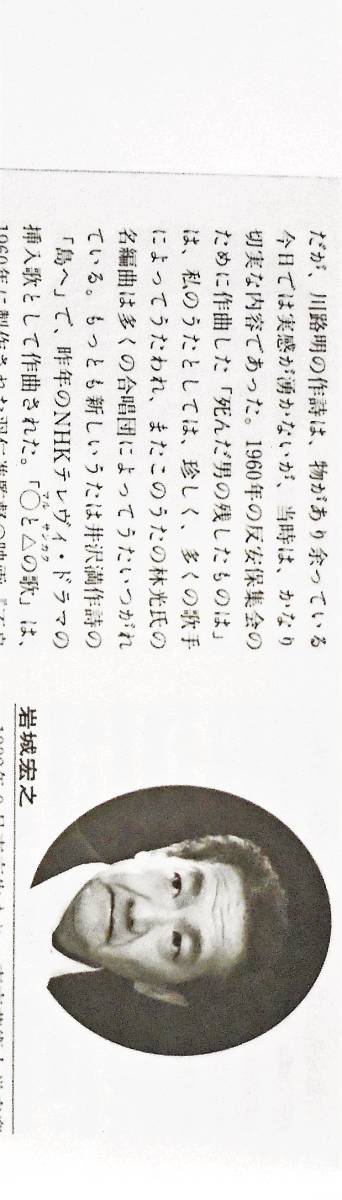 だが、川路明の作詩は、物があり余っている
今日では実感が湧かないが、当時は、かなり
切実な内容であった。1960年の反安保集会の
ために作曲した「死んだ男の残したものは」
は、私のうたとしては、珍しく、多くの歌手
によってうたわれ、またこのうたの林光氏の
名編曲は多くの合唱団によってうたいつがれ
ている。もっとも新しいうたは井沢満作詩の
「島へ」で、昨年のNHKテレヴィ・ドラマの
挿入歌として作曲された。「○と△の歌」は、
マル サンカク
1960年に製作された羽仁進監督の映画
岩城宏之